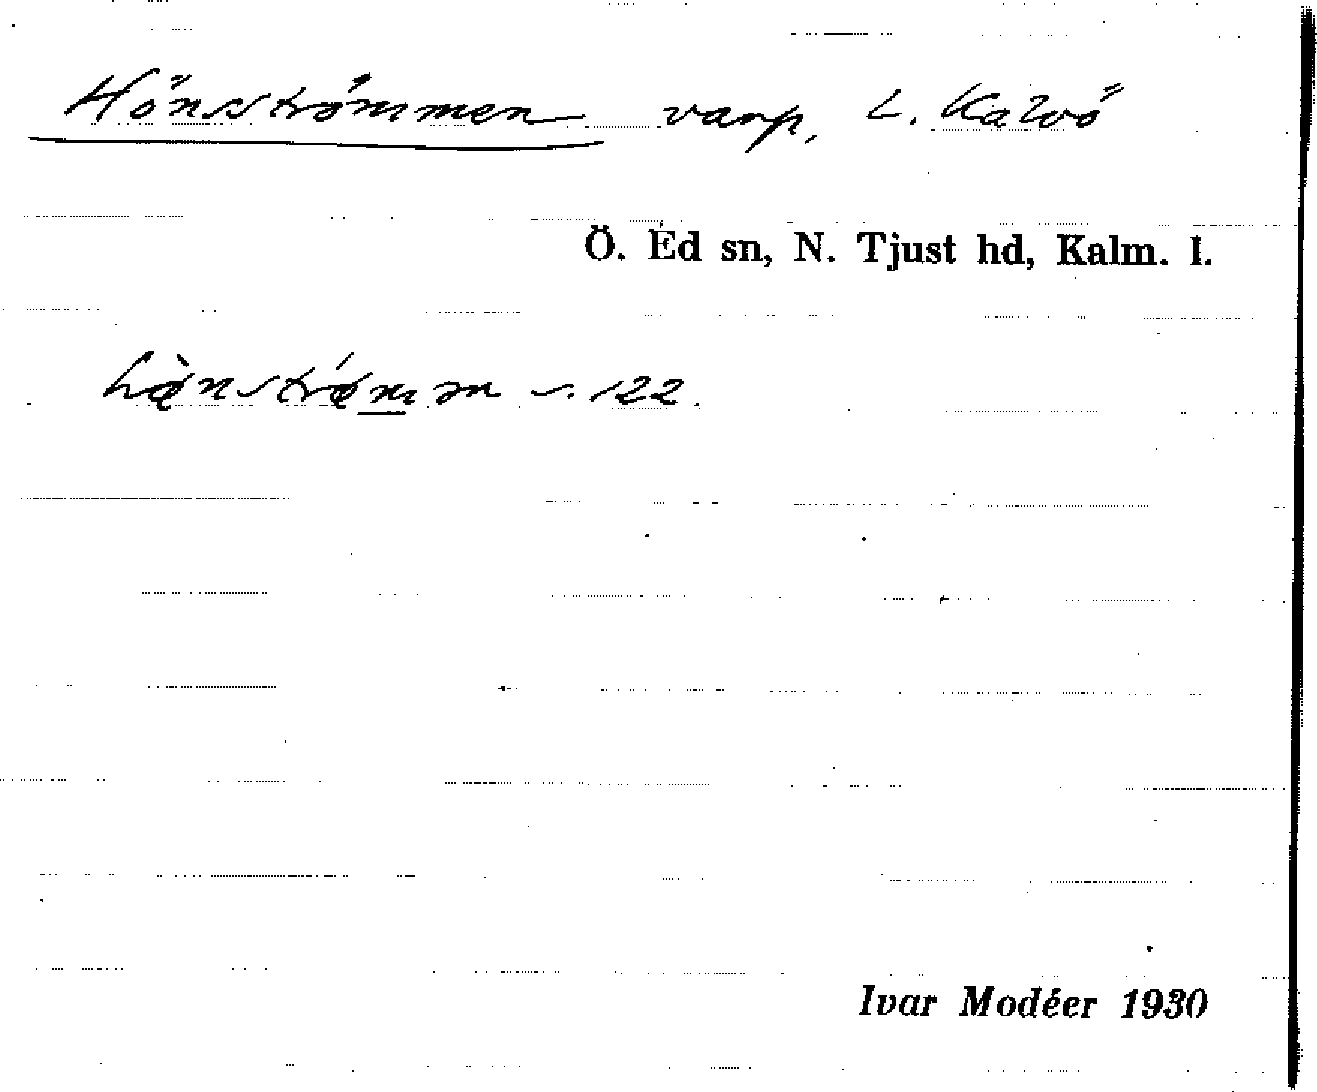 Hönsströmmen varp, L. Kalvö
Ö. Ed sn, N. Tjust hd, Kalm. l.
s. 122.
Ivar Modéer 1930